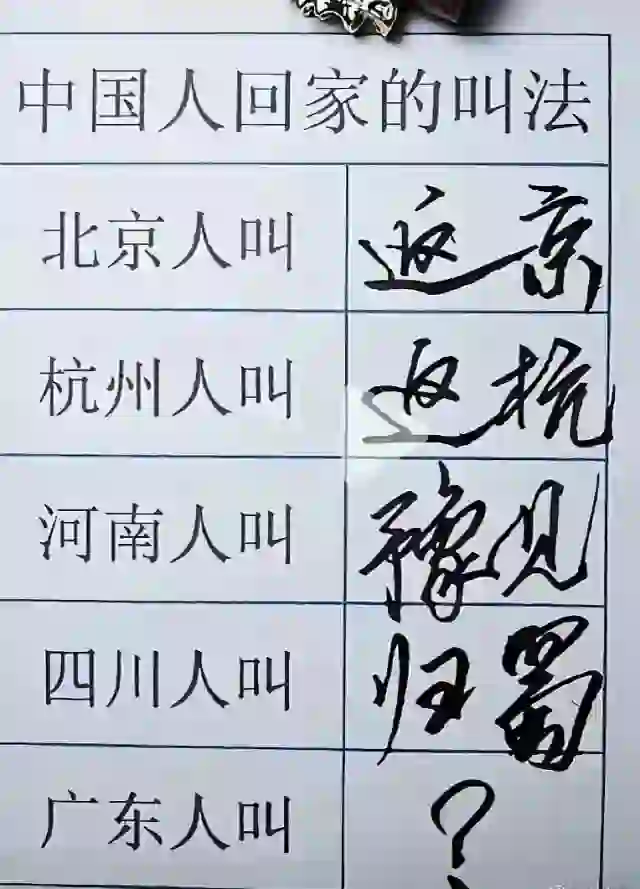 中国人回家的叫法
北京人叫 返京
杭州人叫 返杭
河南人叫 豫见
四川人叫 归蜀
广东人叫 ?